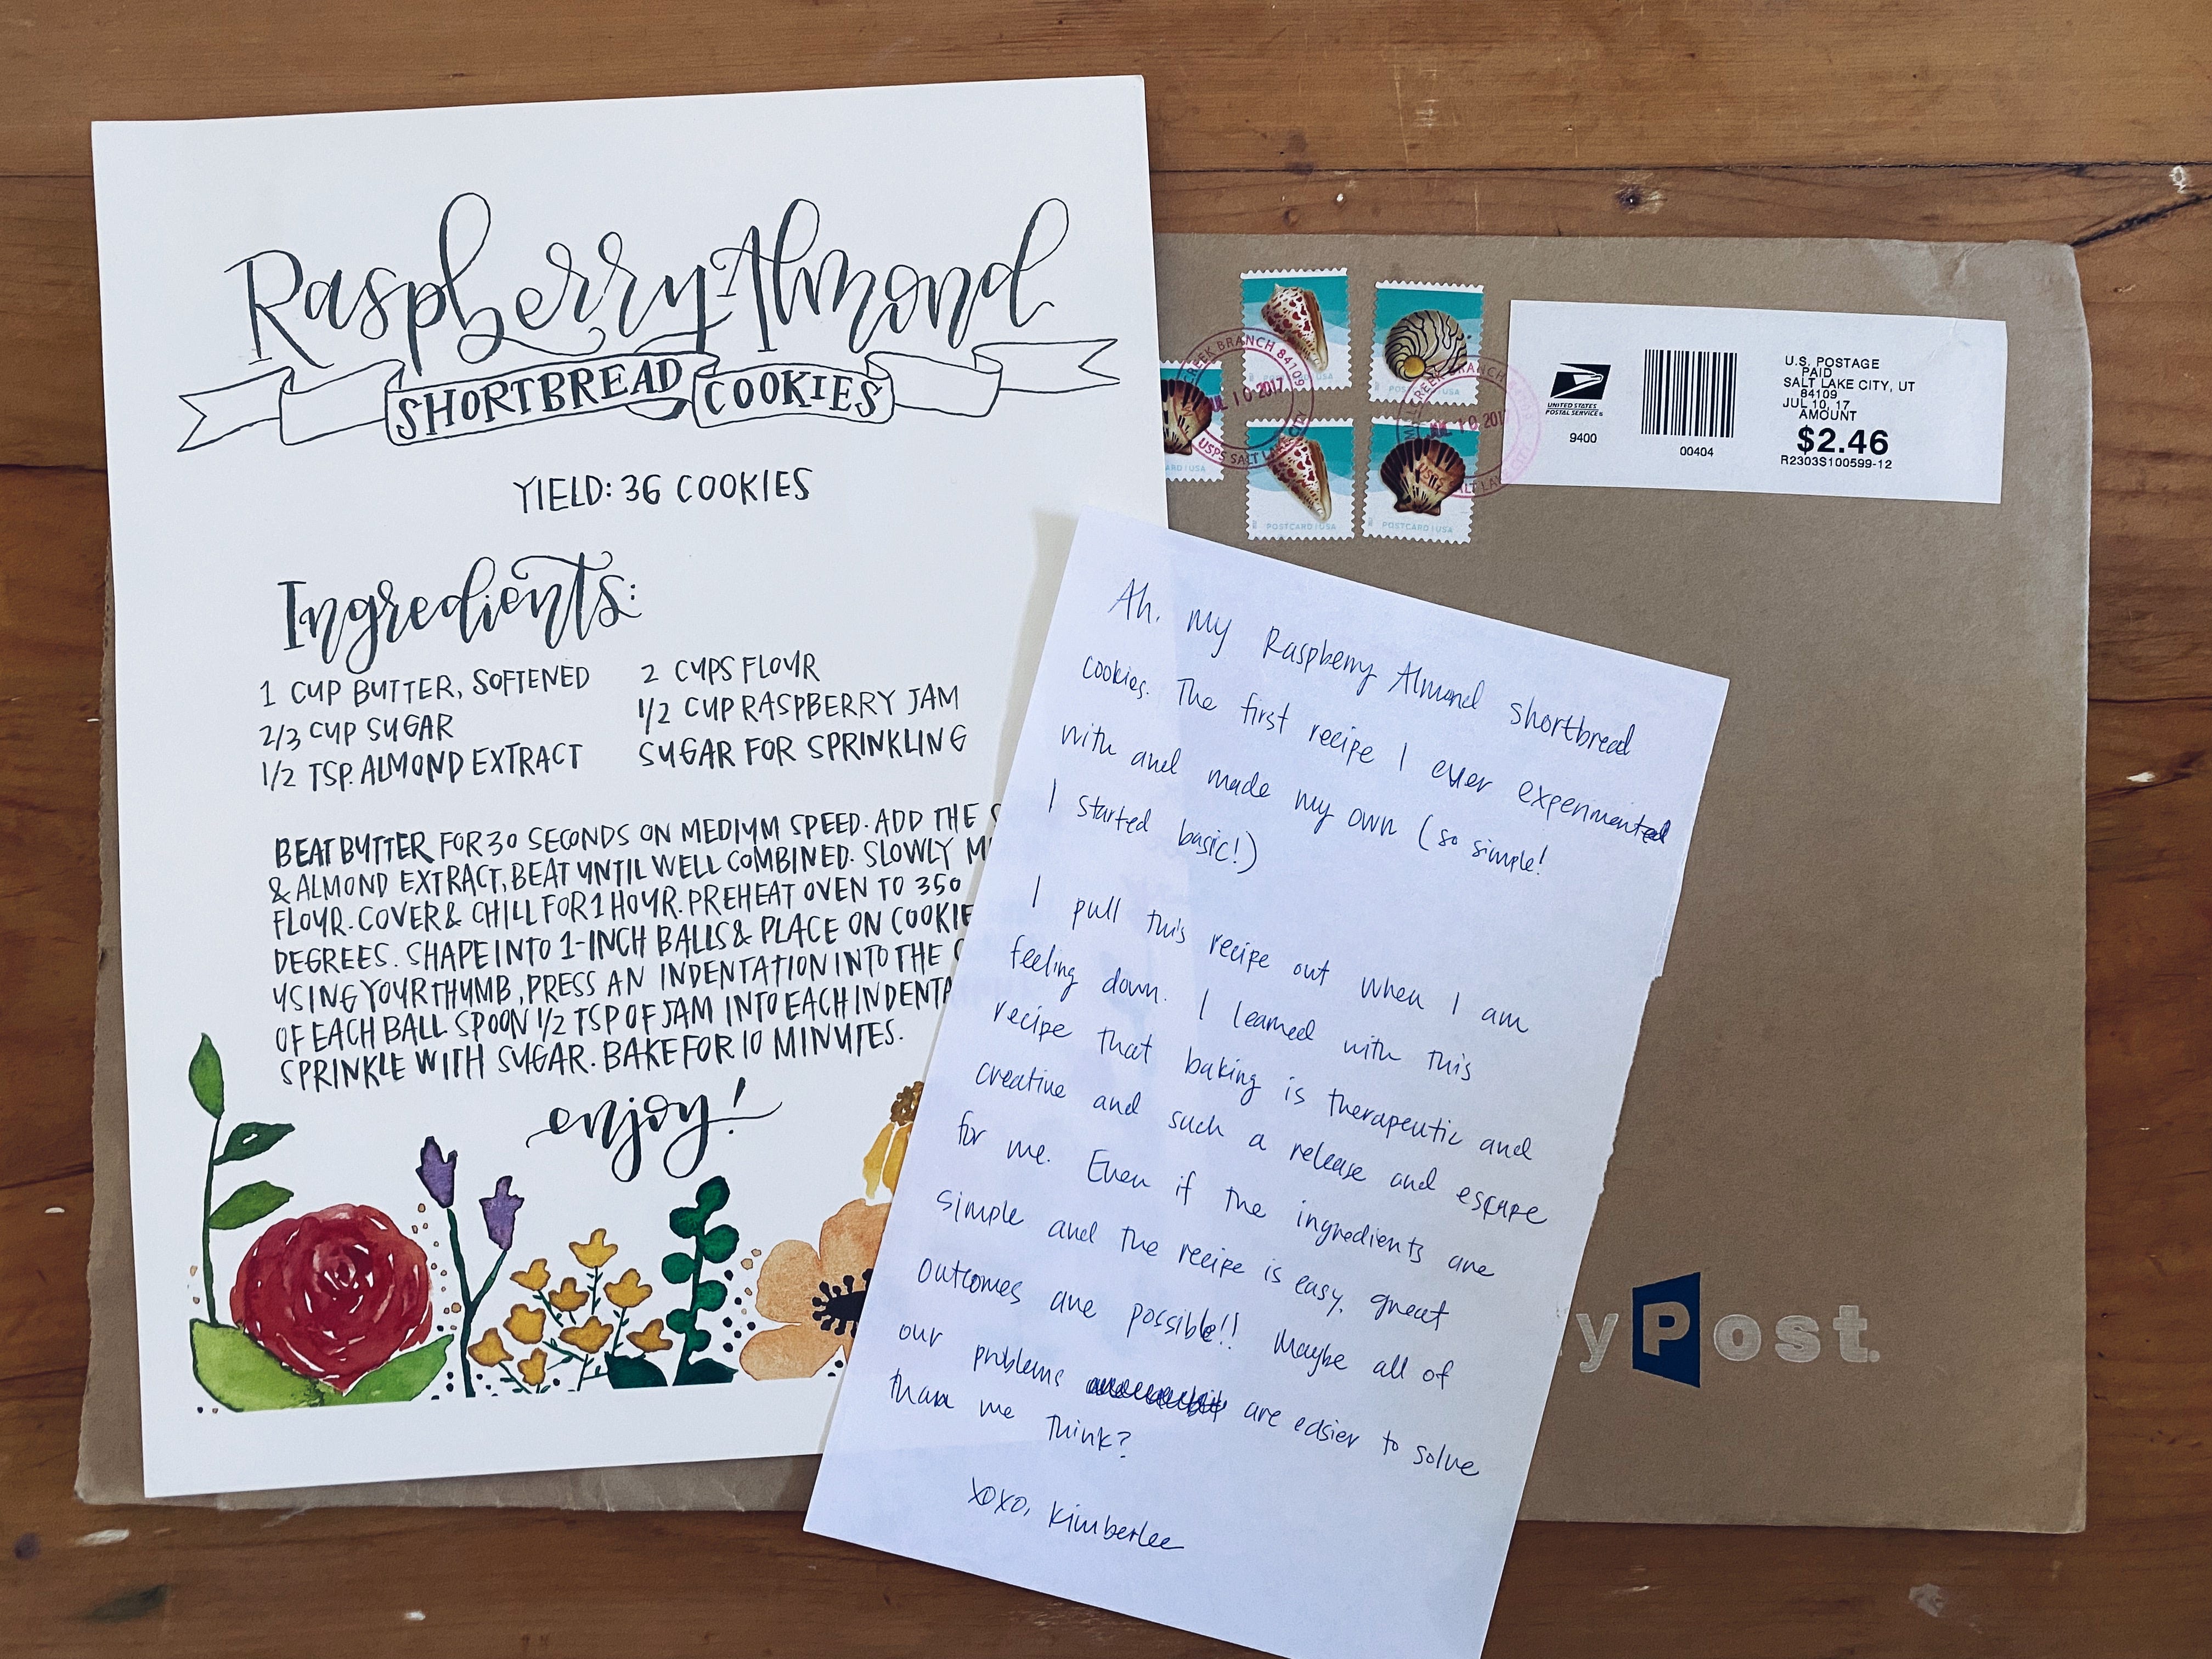 Raspberry Almond
SHORTBREAD COOKIES
YIELD: 36 COOKIES
Ingredients:
1 CUP BUTTER, SOFTENED
2/3 CUP SUGAR
1/2 TSP. ALMOND EXTRACT
2 CUPS FLOUR
1/2 CUP RASPBERRY JAM
SUGAR FOR SPRINKLING
BEAT BUTTER FOR 30 SECONDS ON MEDIUM SPEED. ADD THE
& ALMOND EXTRACT, BEAT UNTIL WELL COMBINED. SLOWLY
FLOUR. COVER & CHILL FOR 1 HOUR. PREHEAT OVEN TO 350
DEGREES. SHAPE INTO 1-INCH BALLS & PLACE ON COOKIE
USING YOUR THUMB, PRESS AN INDENTATION INTO THE
OF EACH BALL. SPOON 1/2 TSP OF JAM INTO EACH INDENTA
SPRINKLE WITH SUGAR. BAKE FOR 10 MINUTES.
enjoy!
Ah, my Raspberry Almond shortbread
cookies. The first recipe I ever experimented
with and made my own (so simple!
I started basic!)
I pull this recipe out when I am
feeling down. I learned with this
recipe that baking is therapeutic and
creative and such a release and escape
for me. Even if the ingredients are
simple and the recipe is easy, great
outcomes are possible!! Maybe all of
our problems are easier to solve
than we think?
xoxo, Kimberlee
POSTCARD | USA
POSTCARD | USA
ARD | USA
CREEK BRANCH 84109
JUL 10 2017
USPS SALT LAKE CITY
REEK BRANCH
JUL 10 201
UNITED STATES
POSTAL SERVICE®
9400
00404
U.S. POSTAGE
PAID
SALT LAKE CITY, UT
84109
JUL 10, 17
AMOUNT
$2.46
R2303S100599-12
yPost.